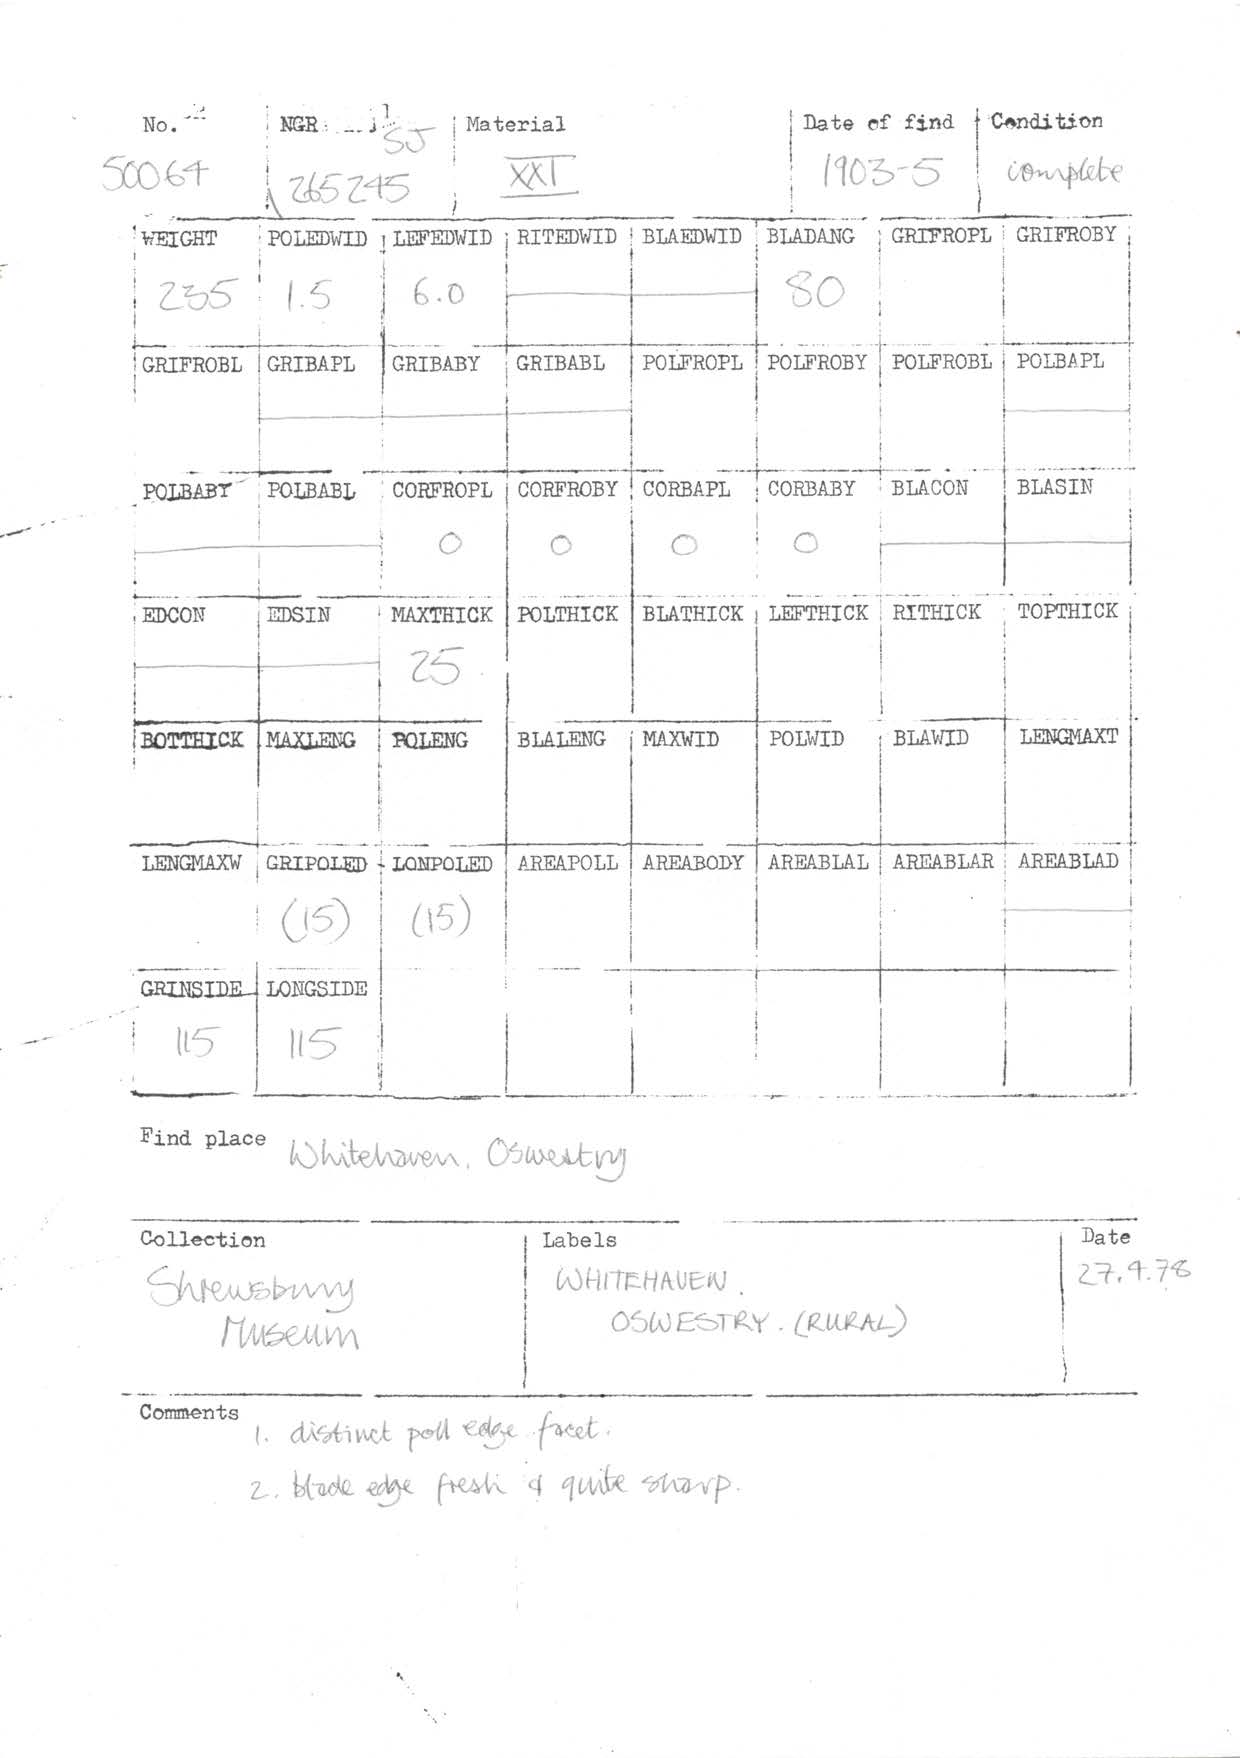 No. NGR SJ Material Date of find Condition
50064 265245 XXI 1903-5 complete
WEIGHT POLEDWID LEFEDWID RITEDWID BLAEDWID BLADANG GRIFROPL GRIFROBY
235 1.5 6.0 80
GRIFROBL GRIBAPL GRIBABY GRIBABL POLFROPL POLFROBY POLFROBL POLBAPL
POLBABY POLBABL CORFROPL CORFROBY CORBAPL CORBABY BLACON BLASIN
0 0 0 0
EDCON EDSIN MAXTHICK POLTHICK BLATHICK LEFTHICK RITHICK TOPTHICK
25
BOTTHICK MAXLENG POLENG BLALENG MAXWID POLWID BLAWID LENGMAXT
LENGMAXW GRIPOLED LONPOLED AREAPOLL AREABODY AREABLAL AREABLAR AREABLAD
(15) (15)
GRINSIDE LONGSIDE
115 115
Find place Whitehaven, Oswestry
Collection Labels Date
Shrewsbury WHITEHAVEN. 27.9.78
Museum OSWESTRY. (RURAL)
Comments 1. distinct poll edge facet.
2. blade edge fresh & quite sharp.